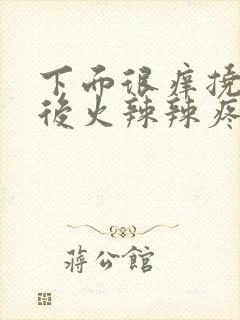 下而很痒挠
后火辣辣疼
蒋公館